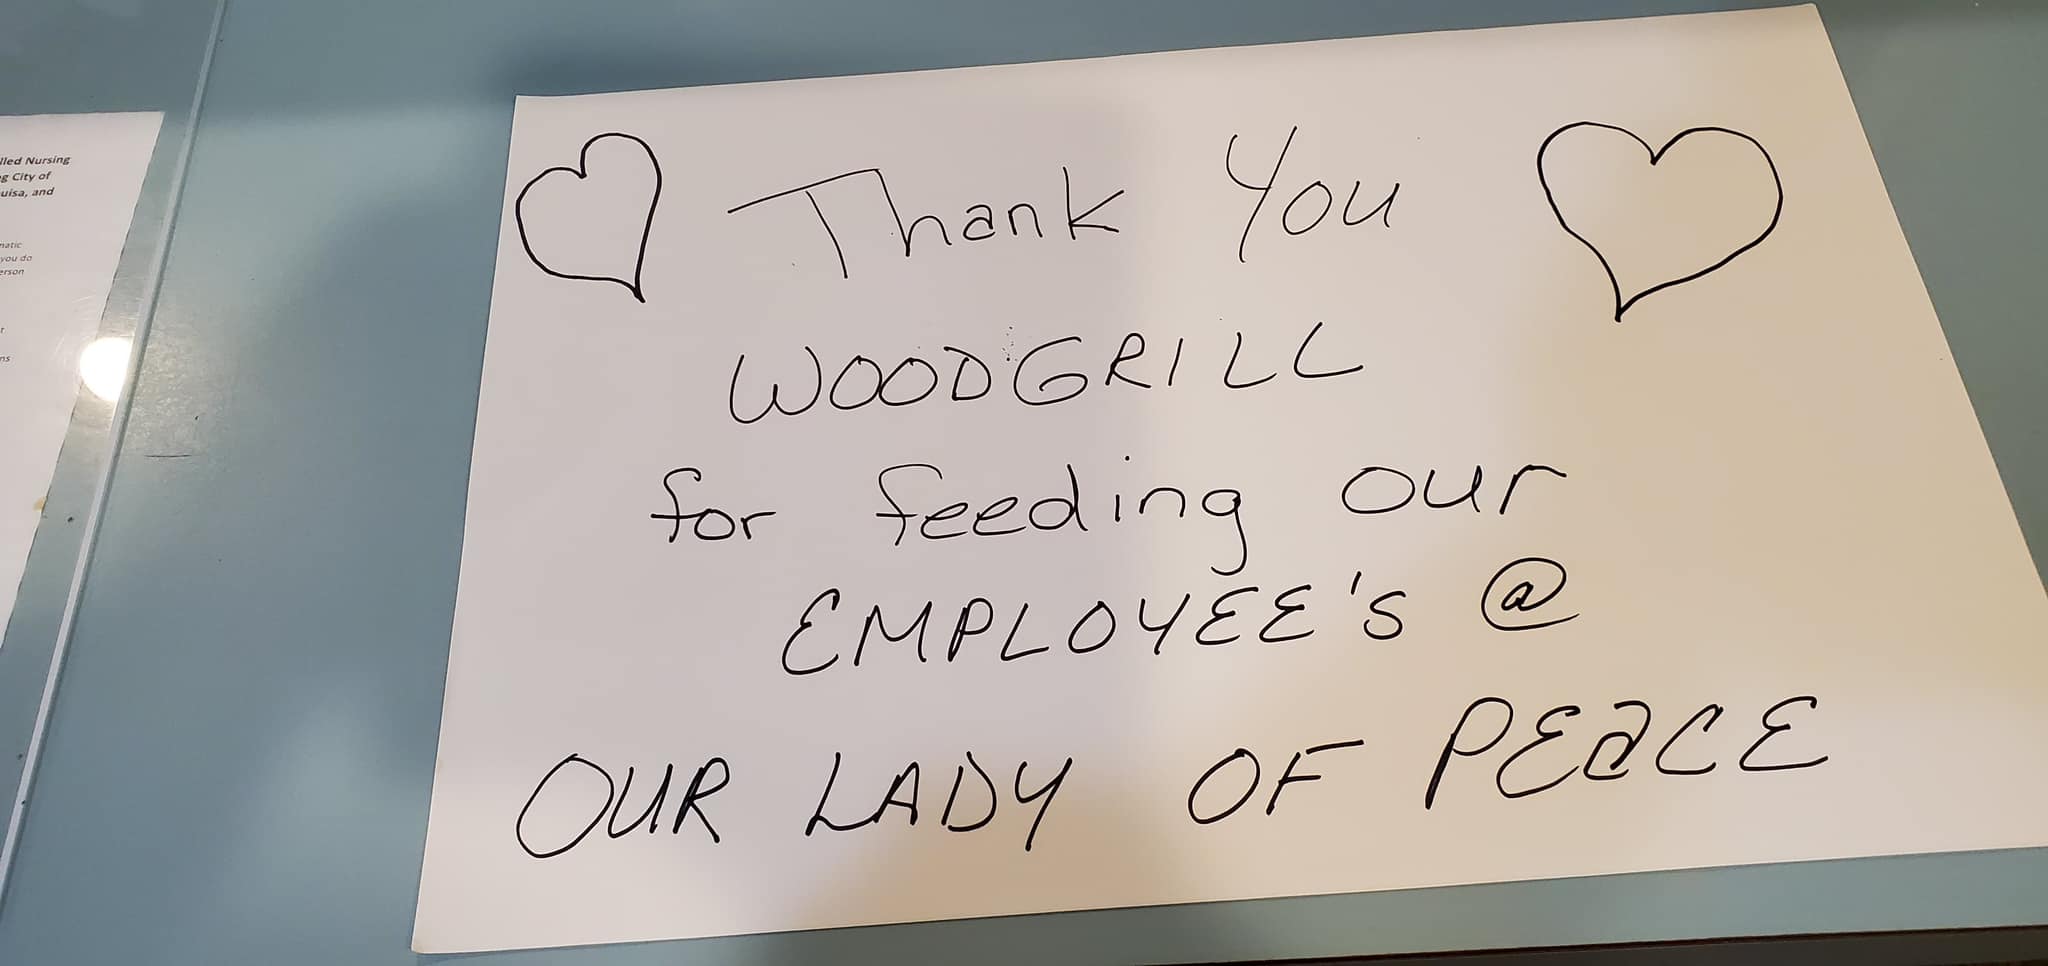 lled Nursing
g City of
uisa, and
matic
you do
erson
Thank You
WOODGRILL
for feeding our
EMPLOYEE's @
OUR LADY OF PEaCE